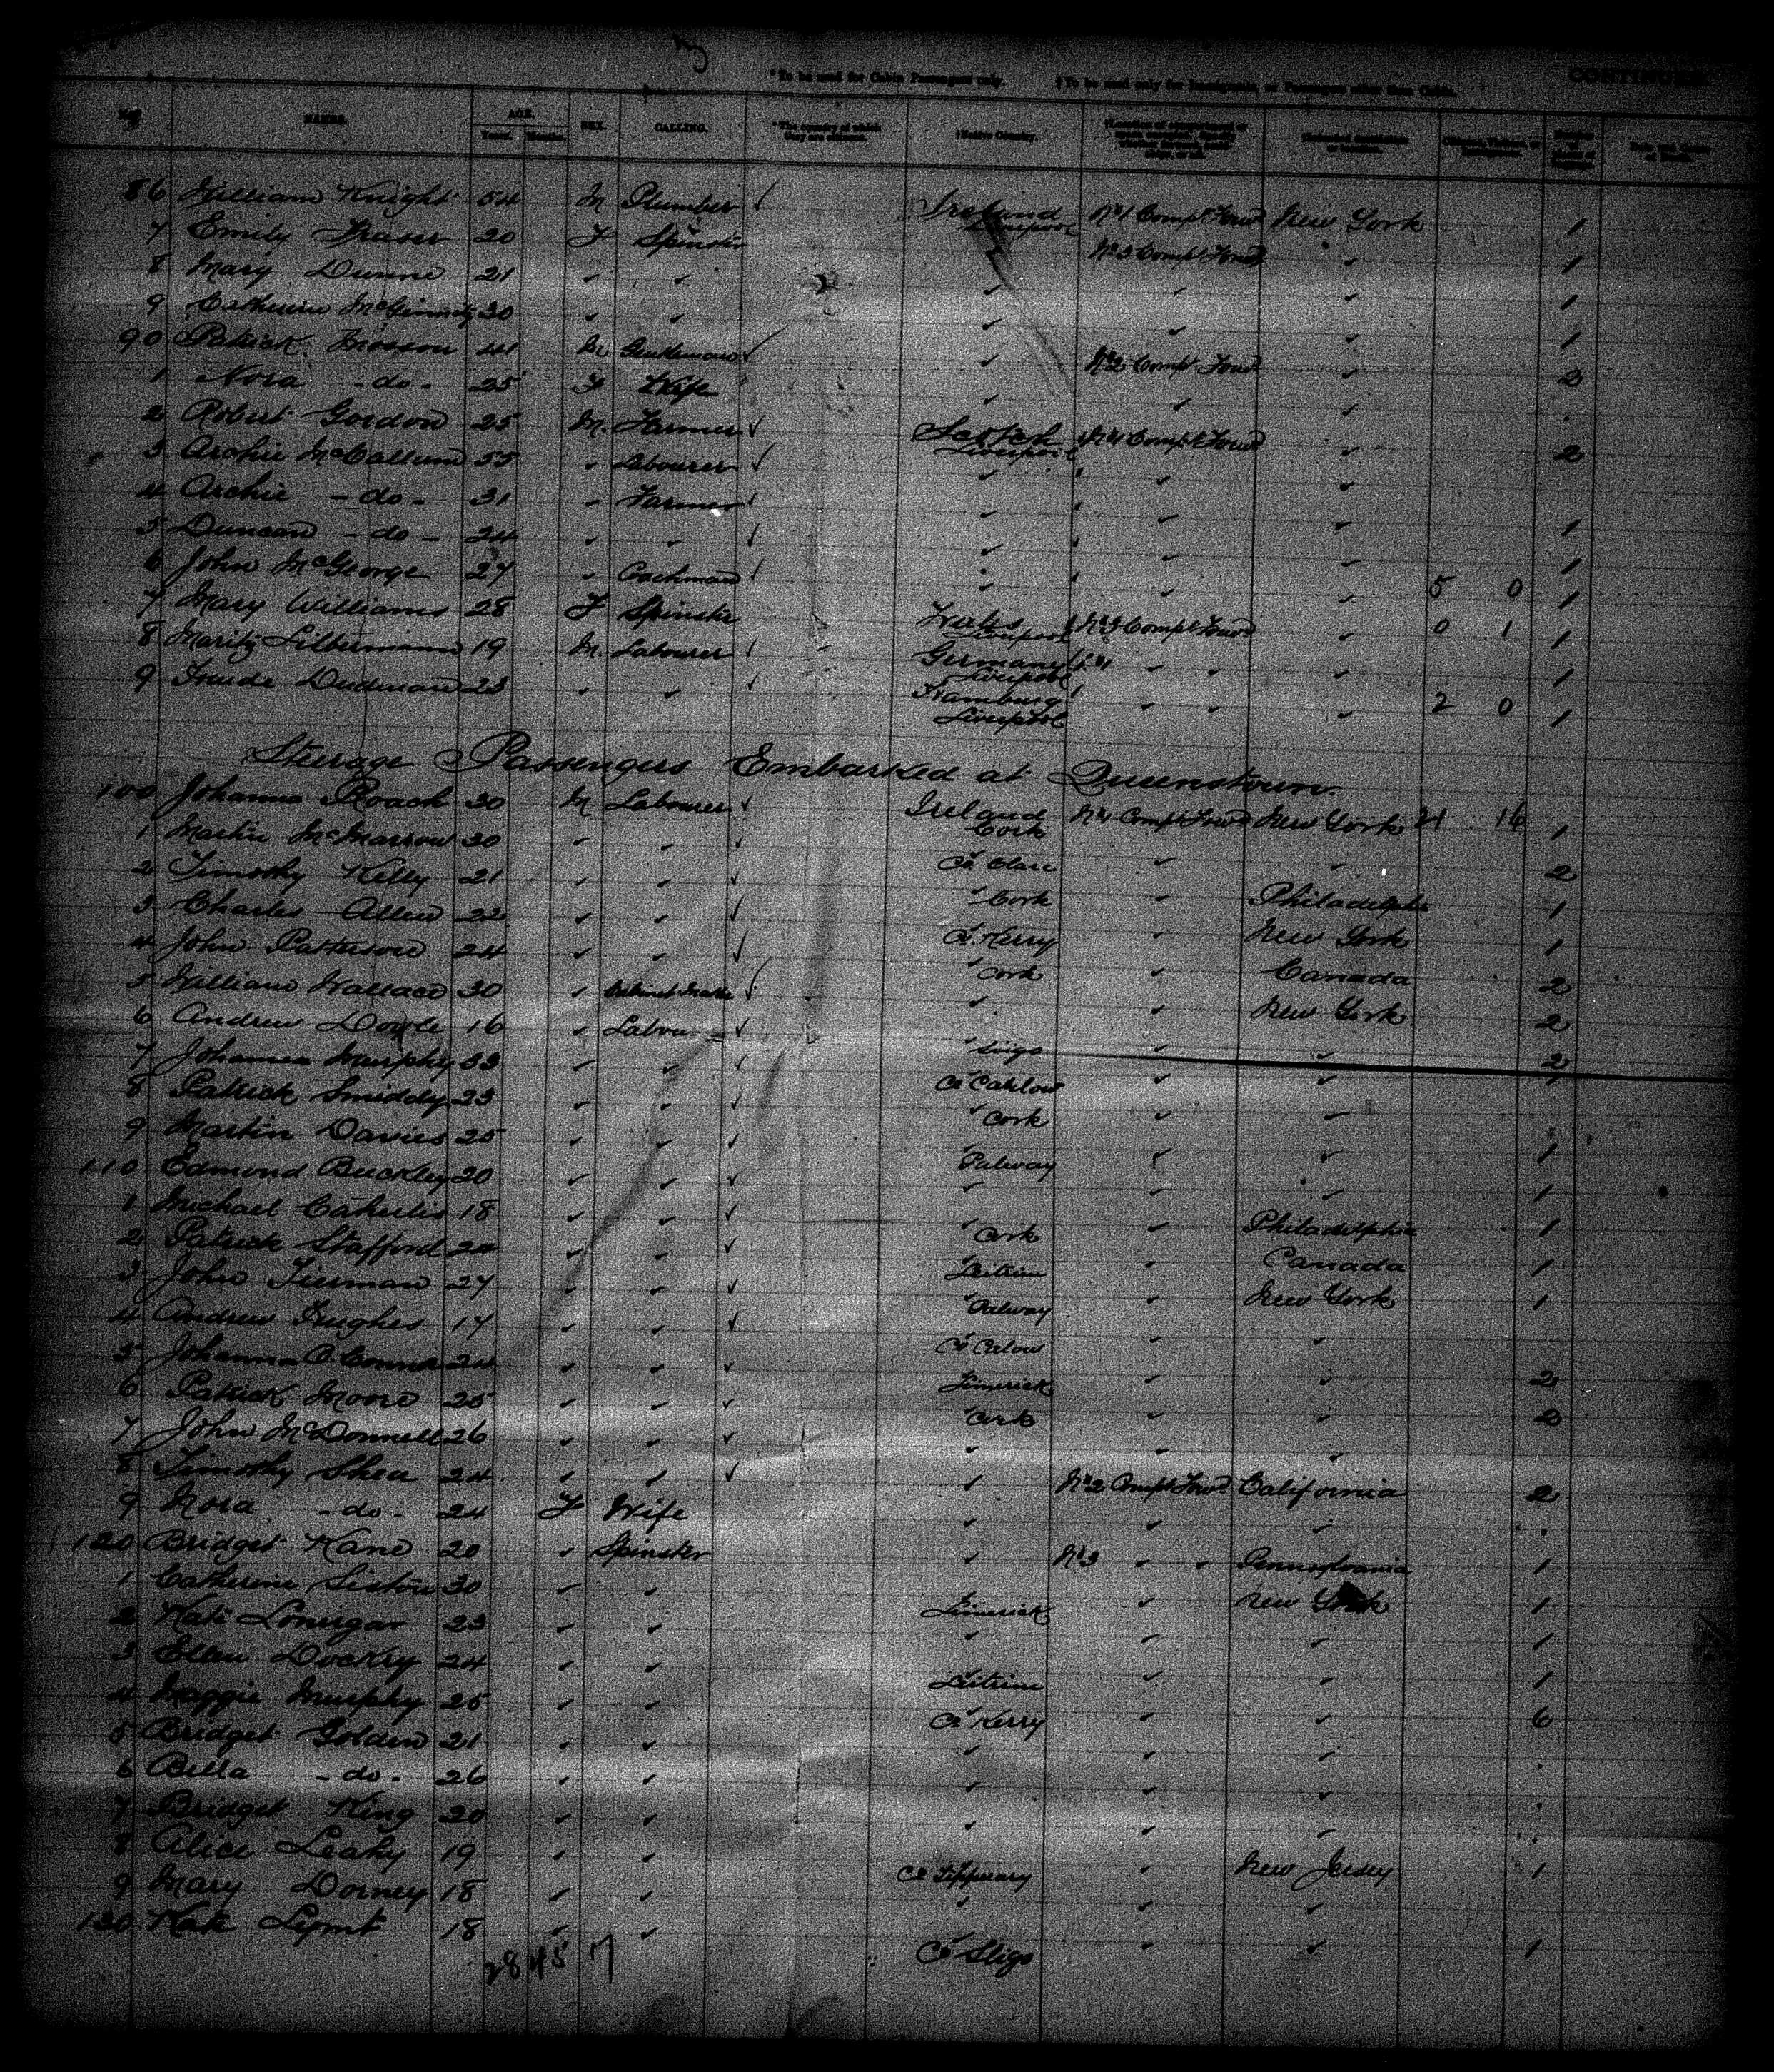 * To be used for Cabin Passengers only. † To be used only for Immigrants, or Passengers other than Cabin. CONTINUED
NAMES. AGE. Years. Months. SEX. CALLING. * The country of which they are citizens. † Native Country.
86 William Knight 54 M Plumber ✓ Ireland Liverpool No 1 Compt Forwd New York 1
7 Emily Fraser 20 F Spinster No 3 Compt Forwd ✓ 1
8 Mary Dunne 21 ✓ ✓ ✓ ✓ ✓ 1
9 Catherine McGinnity 30 ✓ ✓ ✓ ✓ ✓ 1
90 Patrick 41 M Gentleman ✓ ✓ No 2 Compt Forwd ✓ 2
1 Nora - do - 25 F Wife ✓ ✓ ✓
2 Robert Gordon 25 M. Farmer ✓ Scotch Liverpool No 1 Compt Forwd ✓ 2
3 Archie McCallum 55 ✓ Labourer ✓ ✓ ✓ ✓
4 Archie - do - 31 ✓ Farmer ✓ ✓ ✓ ✓ 1
5 Duncan - do - 24 ✓ ✓ ✓ ✓ ✓ ✓ 1
6 John McGeorge 27 ✓ Coachman ✓ ✓ ✓ ✓ 5 0 1
7 Mary Williams 28 F Spinster Wales Liverpool No 3 Compt Forwd ✓ 0 1 1
8 Maritz Lilbermann 19 M. Labourer ✓ Germany Liverpool No 1 ✓ ✓ ✓ 1
9 Dudman 23 ✓ ✓ ✓ Hamburg Liverpool ✓ ✓ ✓ 2 0 1
Steerage Passengers Embarked at Queenstown.
100 Johanna Roach 30 M Labourer ✓ Ireland Cork No 1 Compt Forwd New York 21 16 1
1 Martin McMarrow 30 ✓ ✓ ✓ Co Clare ✓ ✓ 2
2 Timothy Kelly 21 ✓ ✓ ✓ Cork ✓ Philadelphia 1
3 Charles Allen 22 ✓ ✓ ✓ Co. Kerry ✓ New York 1
4 John Patterson 24 ✓ ✓ ✓ Cork ✓ Canada 2
5 William Wallace 30 ✓ Cabinet Maker ✓ ✓ ✓ New York 2
6 Andrew Doyle 16 ✓ Labour ✓ Sligo ✓ ✓ 2
7 Johanna Murphy 33 ✓ ✓ ✓ Co Carlow ✓ ✓
8 Patrick Smiddy 23 ✓ ✓ ✓ Cork ✓ ✓
9 Martin Davies 25 ✓ ✓ ✓ Galway ✓ ✓ 1
110 Edmond Buckley 20 ✓ ✓ ✓ ✓ ✓ ✓ 1
1 Michael 18 ✓ ✓ ✓ Cork ✓ Philadelphia 1
2 Patrick Stafford 24 ✓ ✓ ✓ Leitrim ✓ Canada 1
3 John Tiernan 27 ✓ ✓ ✓ Galway ✓ New York 1
4 Andrew Hughes 17 ✓ ✓ ✓ Co Calow ✓ ✓
5 Johanna O. Connor 24 ✓ ✓ ✓ Limerick ✓ ✓ 2
6 Patrick Moore 25 ✓ ✓ ✓ Cork ✓ ✓ 2
7 John McDonnell 26 ✓ ✓ ✓ ✓ ✓ ✓
8 Timothy Shea 24 ✓ ✓ ✓ ✓ No 2 Compt Forwd California 2
9 Nora - do - 24 F Wife ✓ ✓ ✓
120 Bridget Kane 20 ✓ Spinster ✓ No 3 ✓ ✓ Pennsylvania 1
1 Catherine Liston 30 ✓ ✓ Limerick ✓ New York 1
2 Kate Lonergan 23 ✓ ✓ ✓ ✓ ✓ 1
3 Ellen Dockry 24 ✓ ✓ Leitrim ✓ ✓ 1
4 Maggie Murphy 25 ✓ ✓ Co Kerry ✓ ✓ 6
5 Bridget Golden 21 ✓ ✓ ✓ ✓ ✓
6 Bella - do - 26 ✓ ✓ ✓ ✓ ✓
7 Bridget King 20 ✓ ✓ ✓ ✓ ✓
8 Alice Leahy 19 ✓ ✓ Co Tipperary ✓ New Jersey 1
9 Mary Dorney 18 ✓ ✓ ✓ ✓ ✓
130 Kate 18 ✓ ✓ Co Sligo ✓ ✓ 1
28 45 17